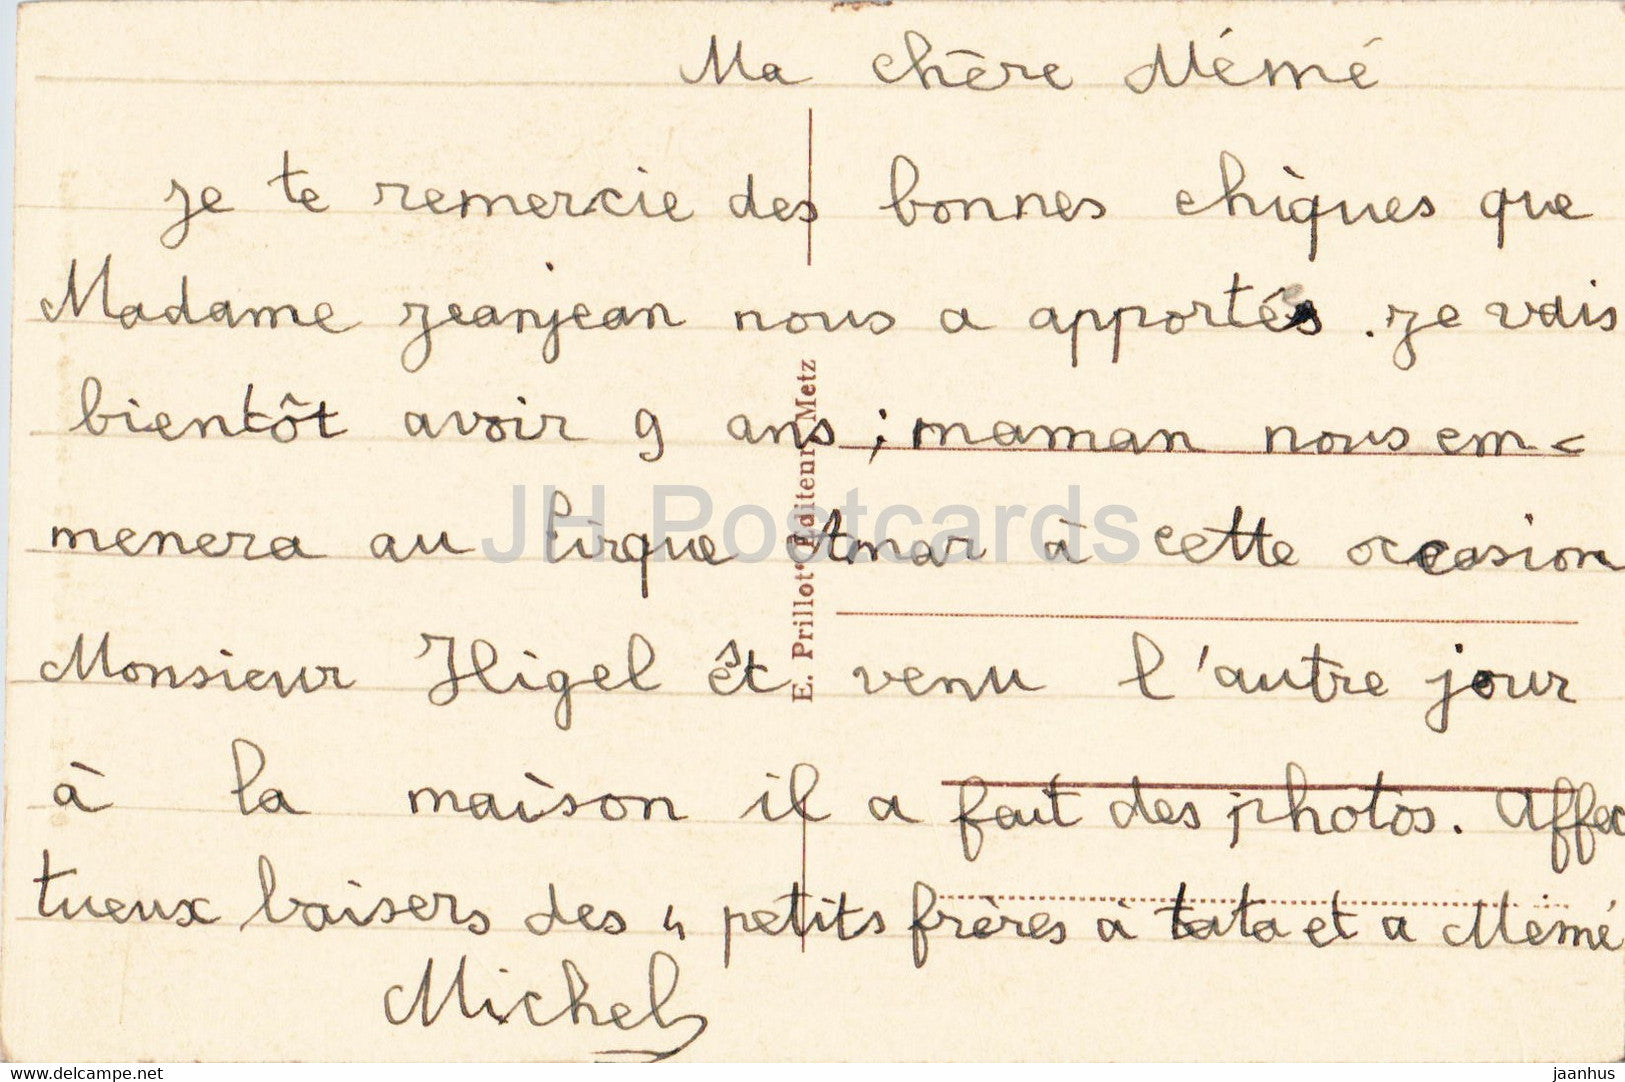 Ma chère Mémé
je te remercie des bonnes chiques que
Madame jeanjean nous a apportés . je vais
bientôt avoir 9 ans ; maman nous em-
menera au Cirque Amar à cette occasion
Monsieur Higel êt venu l'autre jour
à la maison il a fait des photos. Affec
tueux baisers des 4 petits frères à tata et a Mémé
Michel
E. Prillot Editeur Metz
JH Postcards
www.delcampe.net
jaanhus